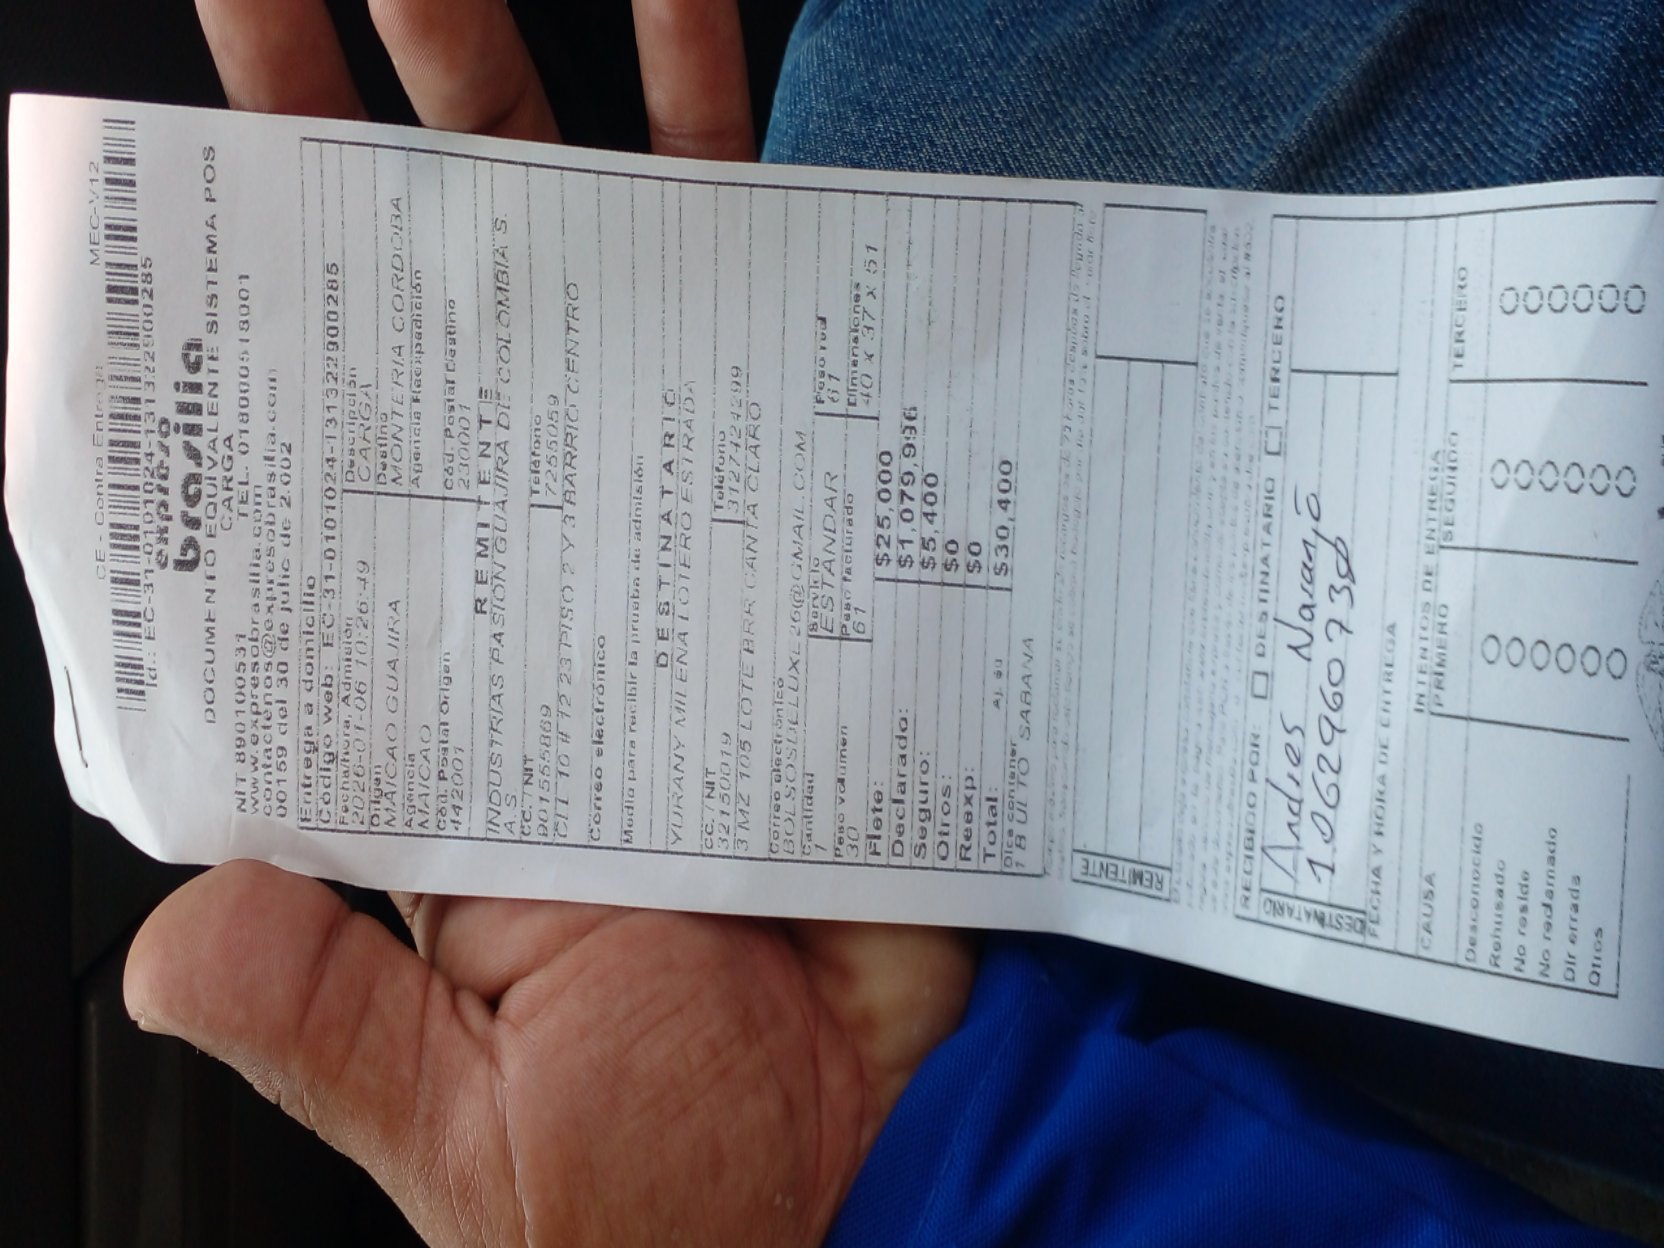 CE - Contra Entrega MEC-V12
Id.: EC-31-0101024-1313222900285
expreso
brasilia
DOCUMENTO EQUIVALENTE SISTEMA POS
CARGA
NIT 890100531 TEL. 018000518001
www.expresobrasilia.com
contactenos@expresobrasilia.com
00159 del 30 de julio de 2.002
Entrega a domicilio
Código web: EC-31-0101024-1313222900285
Fecha/hora, Admisión Descripción
2026-01-06 10:26:49 CARGA
Origen Destino
MAICAO GUAJIRA MONTERIA CORDOBA
Agencia Agencia Reexpedición
MAICAO
Cód. Postal Origen Cód. Postal Destino
442001 230001
REMITENTE
INDUSTRIAS PASION GUAJIRA DE COLOMBIA S.
A.S
CC. NIT Teléfono
901555869 7255059
CLL 10 # 12 23 PISO 2 Y 3 BARRIO CENTRO
Correo electrónico
Medio para recibir la prueba de admisión
DESTINATARIO
YURANY MILENA LOTERO ESTRADA
CC. / NIT Teléfono
32150019 3127424299
3 MZ 105 LOTE BRR CANTA CLARO
Correo electrónico
BOLSOSDELUXE26@GMAIL.COM
Cantidad Servicio Peso real
1 ESTANDAR 61
Peso volumen Peso facturado Dimensiones
30 61 40 x 37 x 51
Flete: $25,000
Declarado: $1,079,996
Seguro: $5,400
Otros: $0
Reexp: $0
Total: $30,400
Dice contener
1 BULTO SABANA
REMITENTE
RECIBIDO POR: DESTINATARIO TERCERO
DESTINATARIO
Andres Naranjo
FECHA Y HORA DE ENTREGA
INTENTOS DE ENTREGA
CAUSA PRIMERO SEGUNDO TERCERO
Desconocido
Rehusado
No reside
No reclamado
Dir errada
Otros